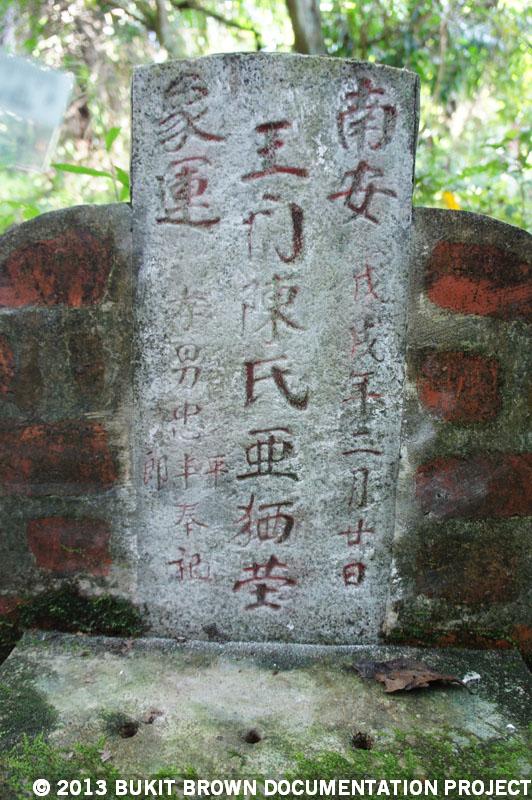 南安
戊戌年二月廿日
王门陳氏亞 茔
象運
孝男忠平
郎
奉祀
© 2013 BUKIT BROWN DOCUMENTATION PROJECT